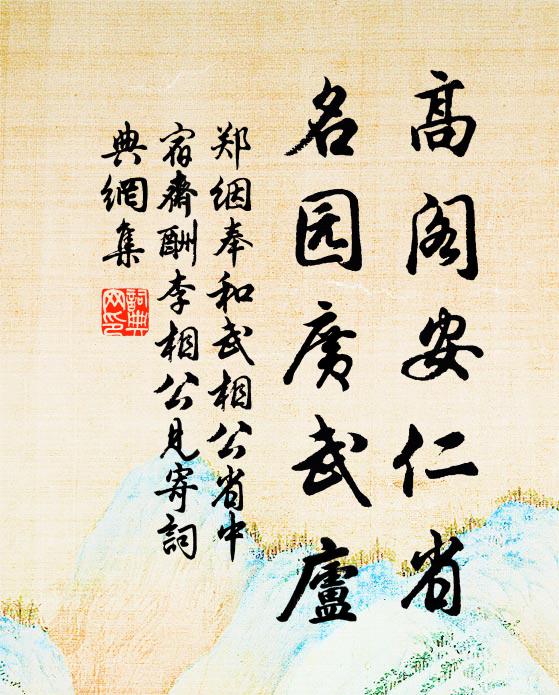 高阁安仁省
名园广武廬
郑絪奉和武相公省中
宿齋酬李相公見寄詞
典網集
詞典
网印